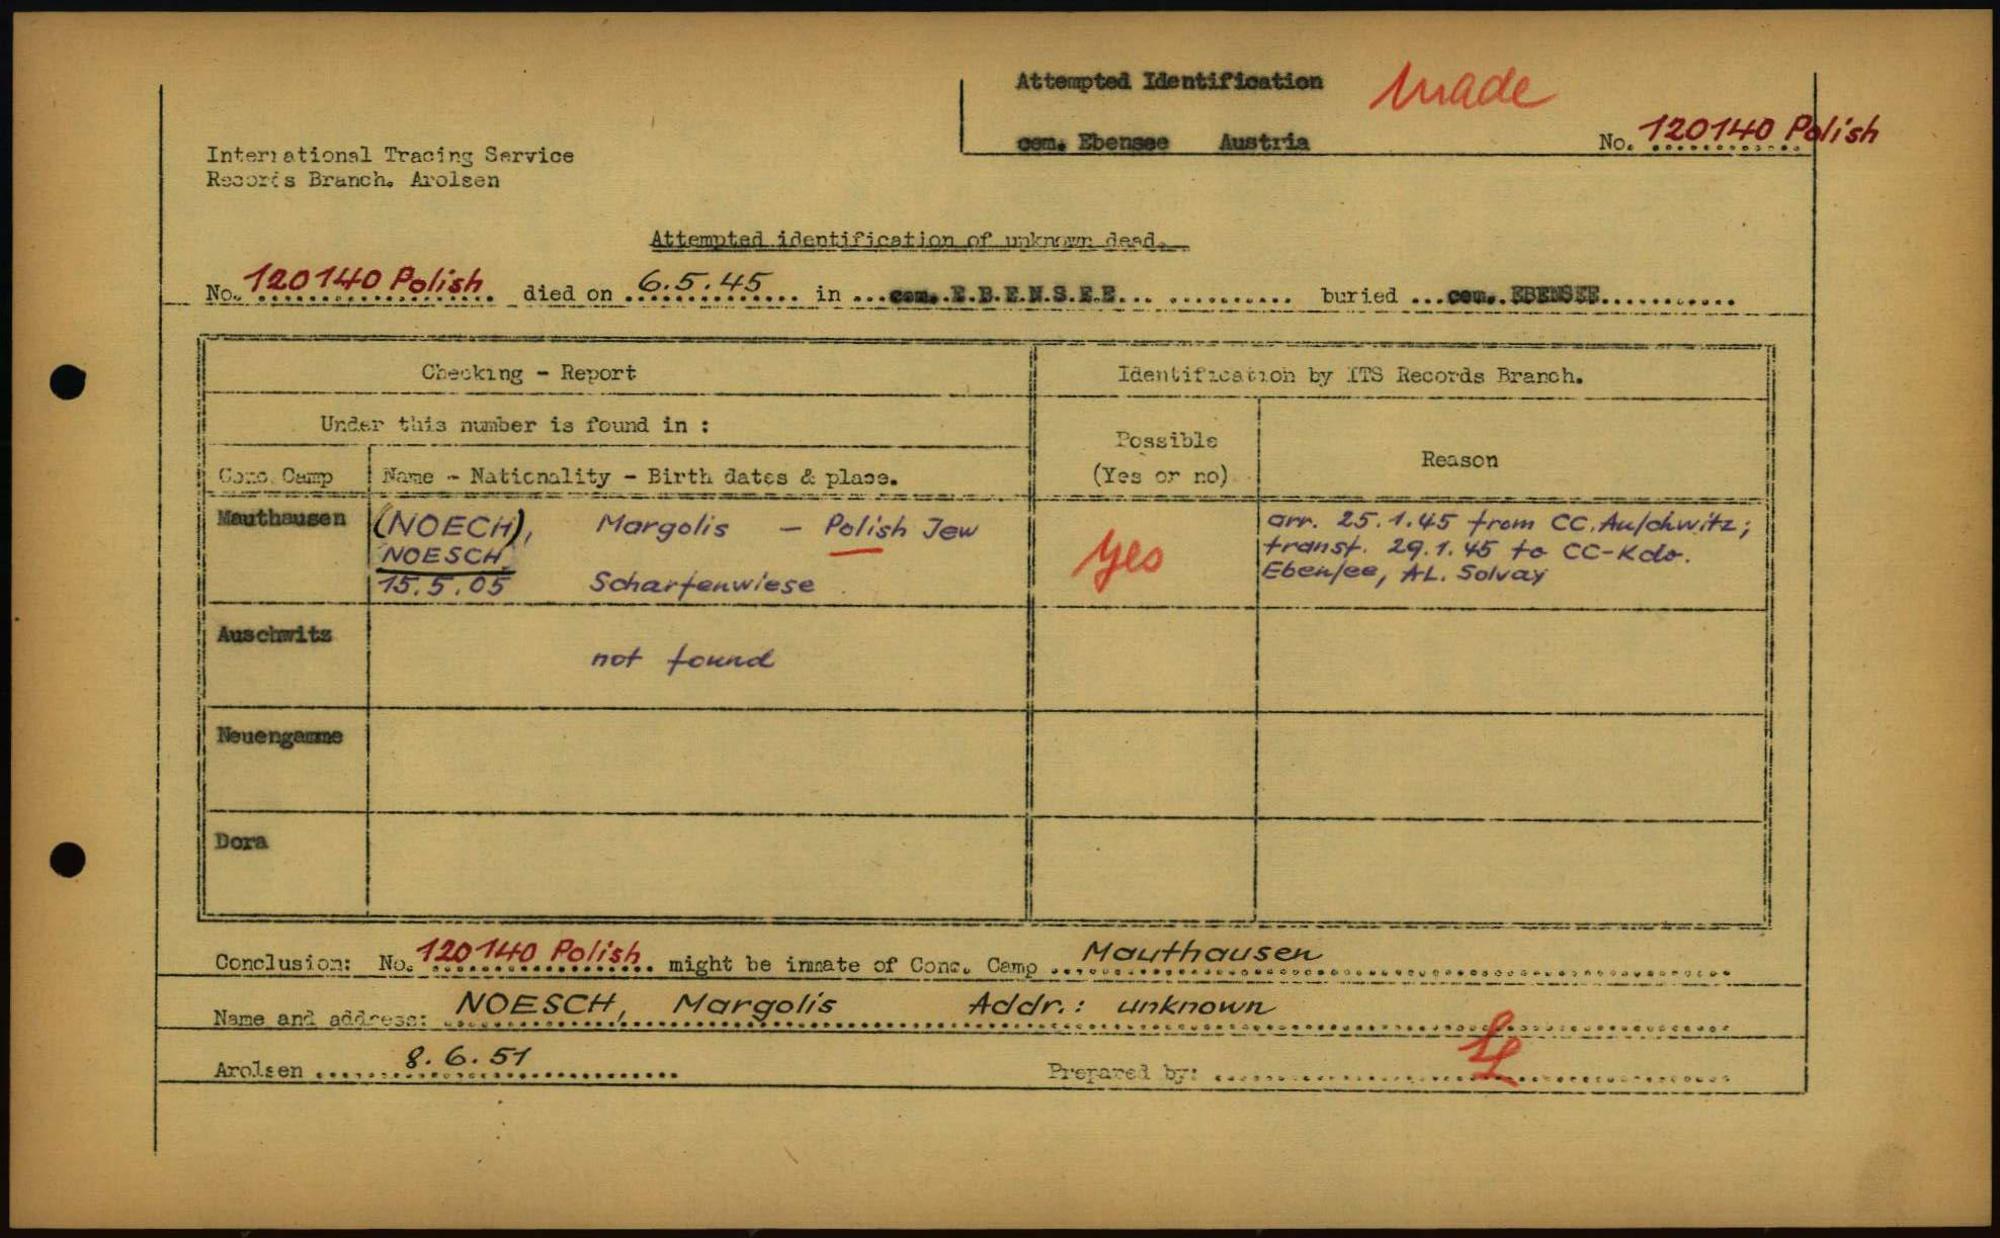 Attempted Identification made
cem. Ebensee Austria No. 120140 Polish
International Tracing Service
Records Branch. Arolsen
Attempted identification of unknown dead.
No. 120140 Polish died on 6.5.45 in cem. E.B.E.N.S.E.E. buried cem. EBENSEE
Checking - Report
Identification by ITS Records Branch.
Under this number is found in :
Possible
(Yes or no)
Reason
Conc. Camp Name - Nationality - Birth dates & place.
Mauthausen (NOECH), Margolis - Polish Jew
NOESCH
15.5.05 Scharfenwiese
yes
arr. 25.1.45 from CC. Auschwitz;
transf. 29.1.45 to CC-Kdo.
Ebensee, AL. Solvay
Auschwitz not found
Neuengamme
Dora
Conclusion: No. 120140 Polish might be inmate of Conc. Camp Mauthausen
Name and address: NOESCH, Margolis Addr.: unknown
Arolsen 8.6.51 Prepared by: